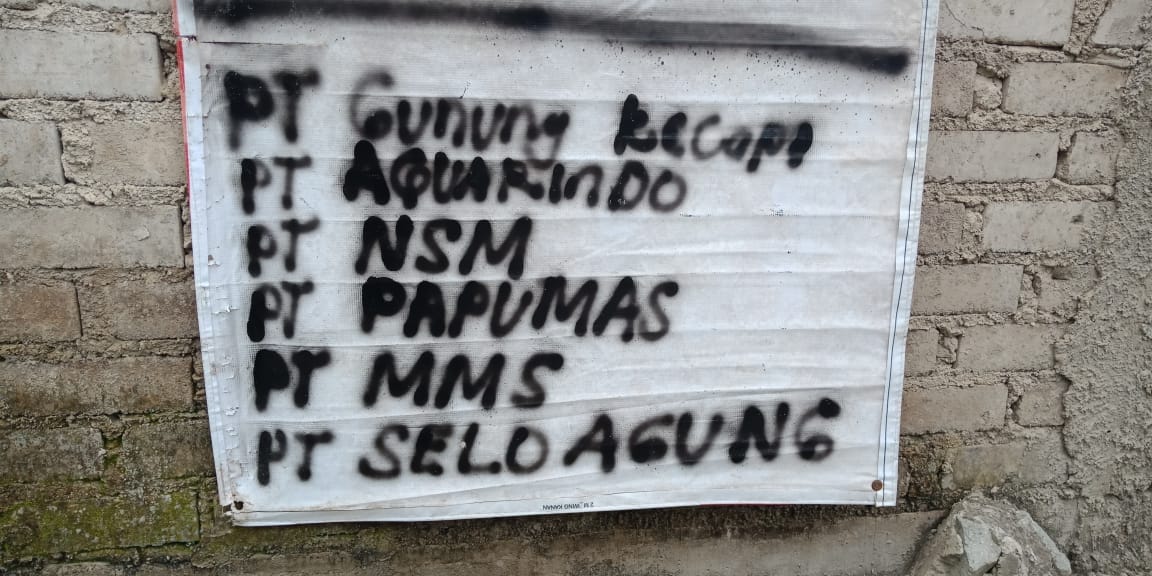 PT Gunung kecapi
PT AQUARinDO
PT NSM
PT PAPUMAS
PT MMS
PT SELO AGUNG
2 M_WING KANAN